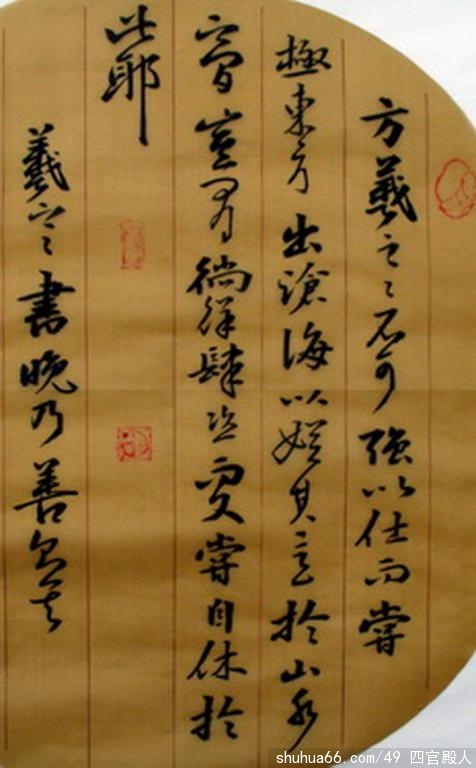 方羲之之不可強以仕而嘗
極東方出滄海以娛其意於山水
之間豈有徜徉肆恣而又嘗自休於
此耶
羲之之書晚乃善
shuhua66.com/49 四官殿人